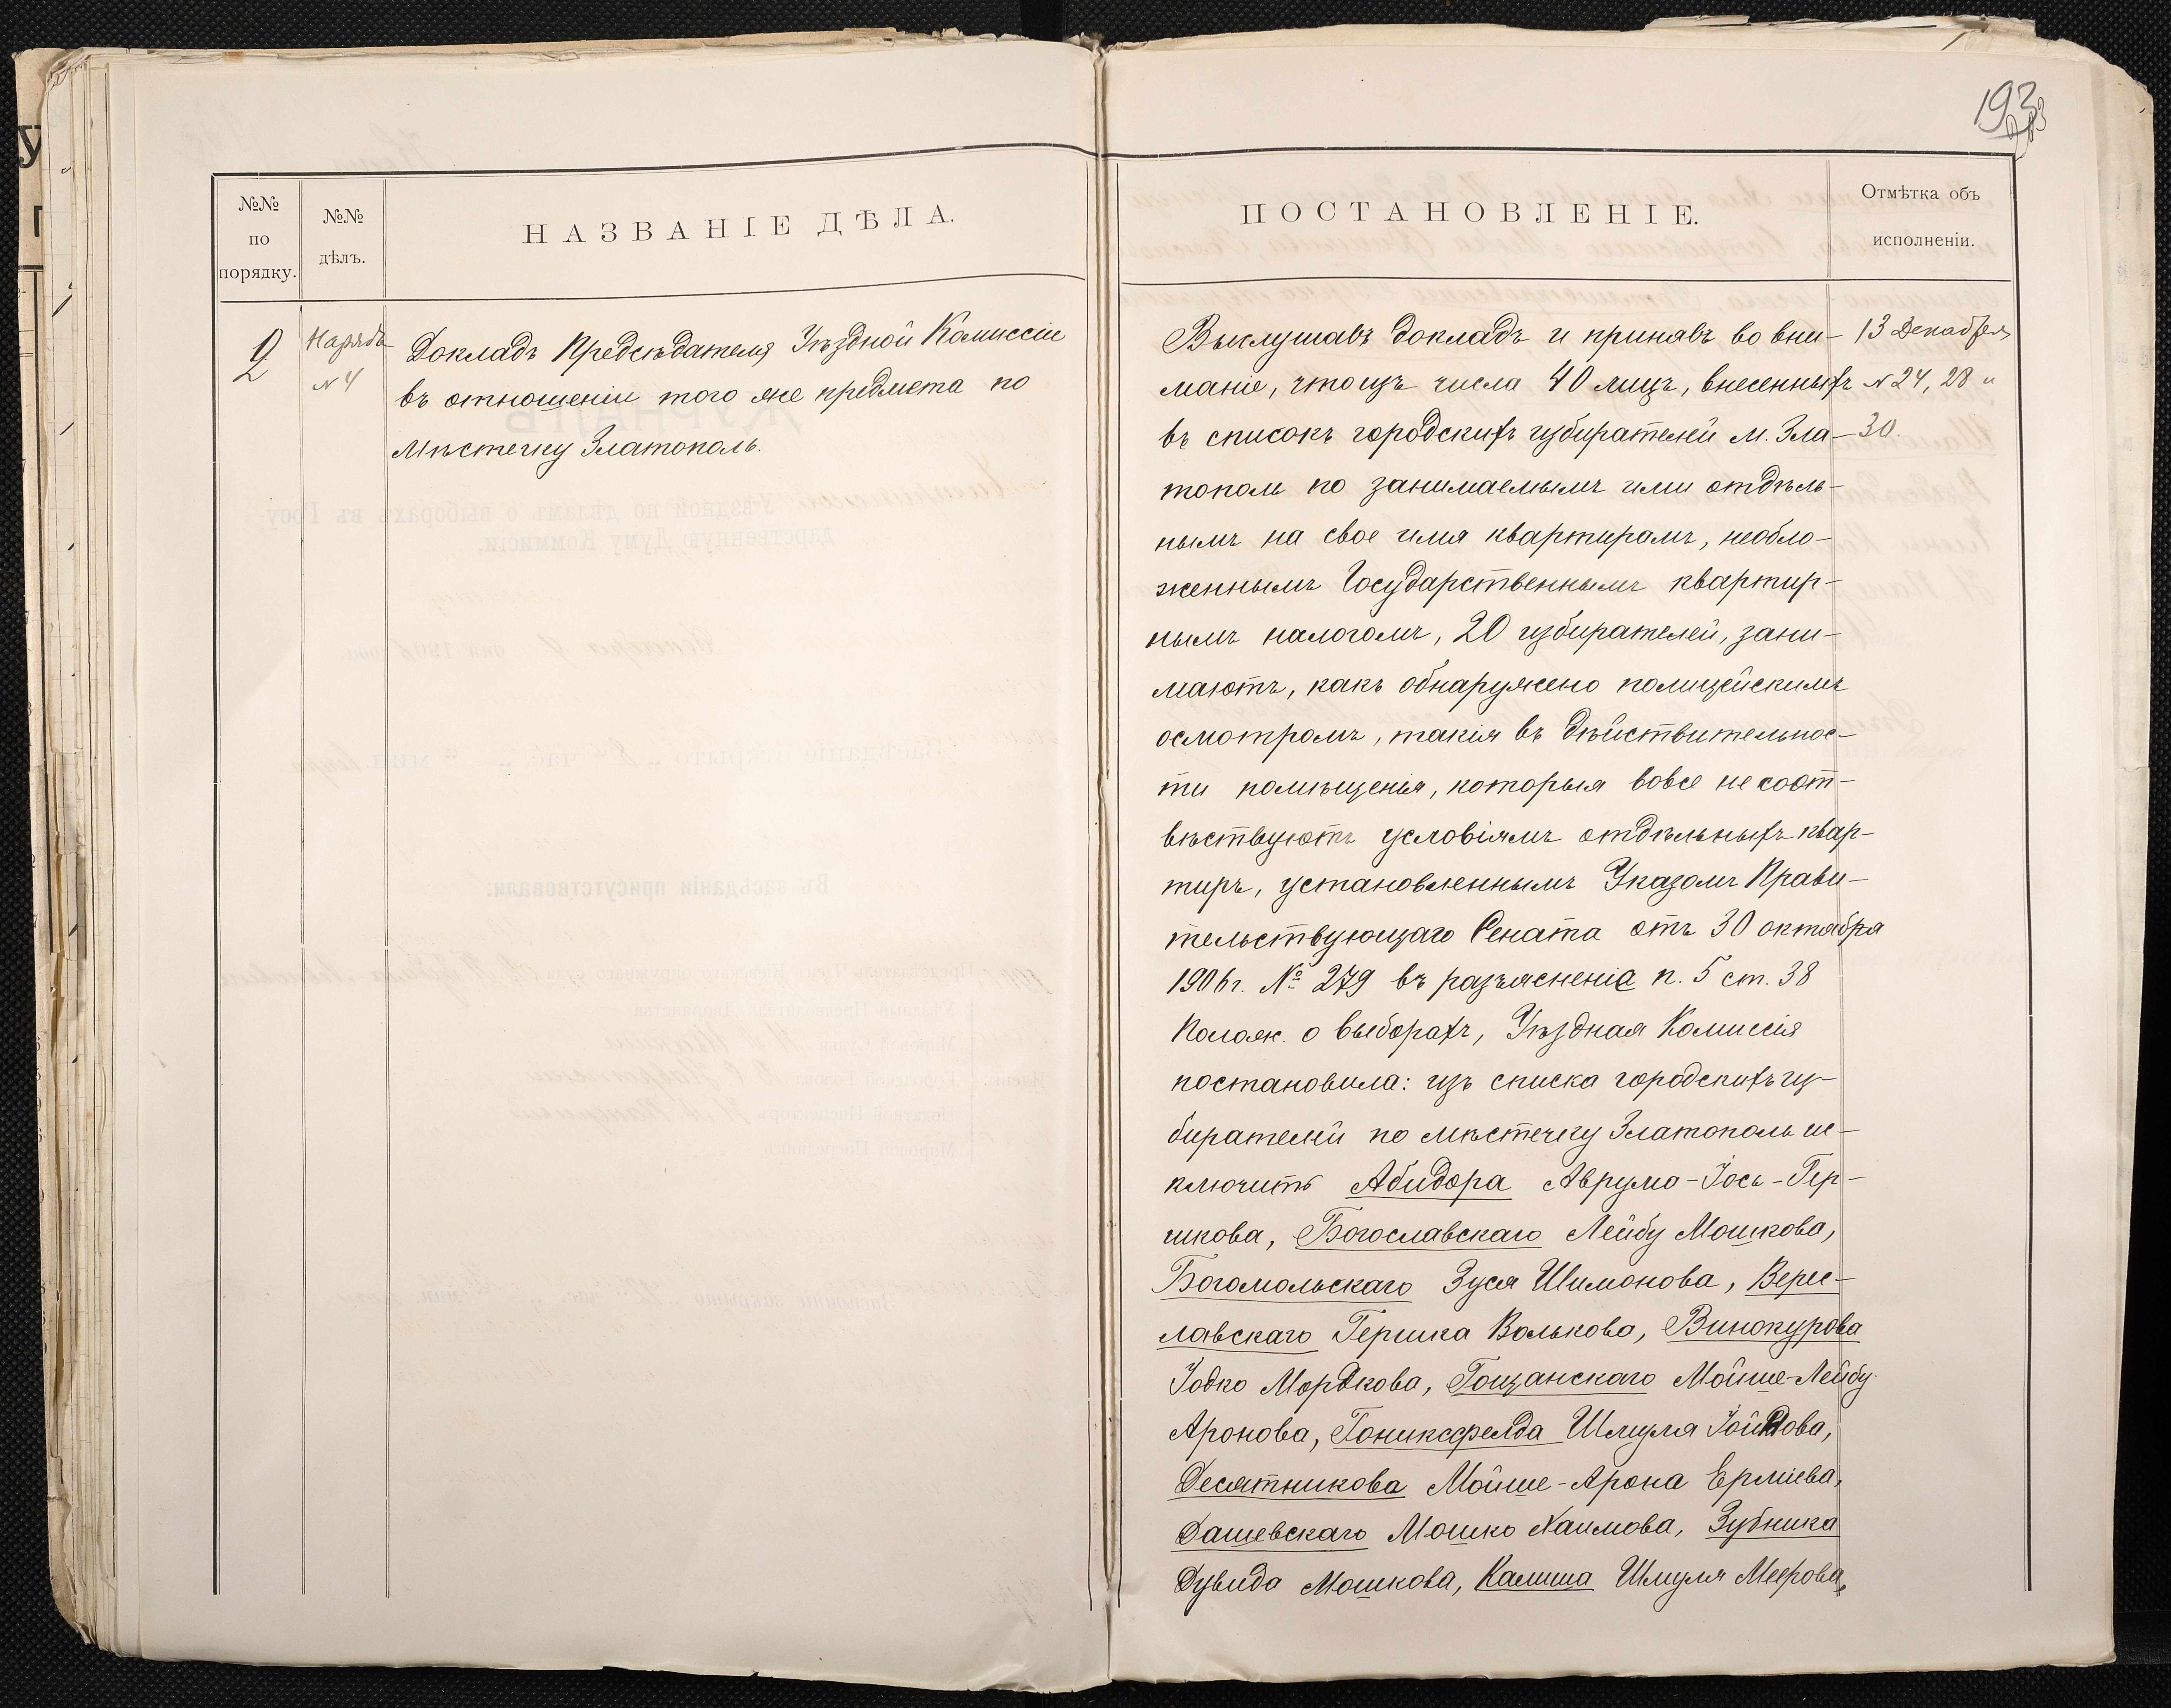 193
№№
по
порядку.
№№
дѣлъ.
НАЗВАНІЕ ДѢЛА.
2
Нарядъ
№ 4
Докладъ Предсѣдателя Уѣздной Комиссіи
въ отношеніи того же предмета по
мѣстечку Златополь.
ПОСТАНОВЛЕНІЕ.
Отмѣтка объ
исполненіи.
Выслушавъ докладъ и принявъ во вни-
маніе, что изъ числа 40 лицъ, внесенныхъ
въ списокъ городскихъ избирателей м. Зла-
тополь по занимаемымъ ими отдѣль-
нымъ на свое имя квартирамъ, необло-
женнымъ Государственнымъ квартир-
нымъ налогомъ, 20 избирателей, зани-
маютъ, какъ обнаружено полицейскимъ
осмотромъ, такія въ дѣйствительнос-
ти помѣщенія, которыя вовсе не соот-
вѣствуютъ условіямъ отдѣльныхъ квар-
тиръ, установленнымъ Указомъ Прави-
тельствующаго Сената отъ 30 октября
1906 г. № 279 въ разъясненіе п. 5 ст. 38
Полож. о выборахъ, Уѣздная Комиссія
постановила: изъ списка городскихъ из-
бирателей по мѣстечку Златополь ис-
ключить Абидора Аврума-Іось-Гер-
шкова, Богославскаго Лейбу Мошкова,
Богомольскаго Зуся Шимонова, Верес-
лавскаго Гершка Волькова, Винокурова
Іодко Мордкова, Гощанскаго Мойше-Лейбу
Аронова, Гониксфелда Шмуля
Десятникова Мойше-Арона Ерміева,
Дашевскаго Мошко Хаимова, Зубника
Дувида Мошкова, Калиша Шмуля Меерова,
13 Декабря
№ 24, 28 и
30.